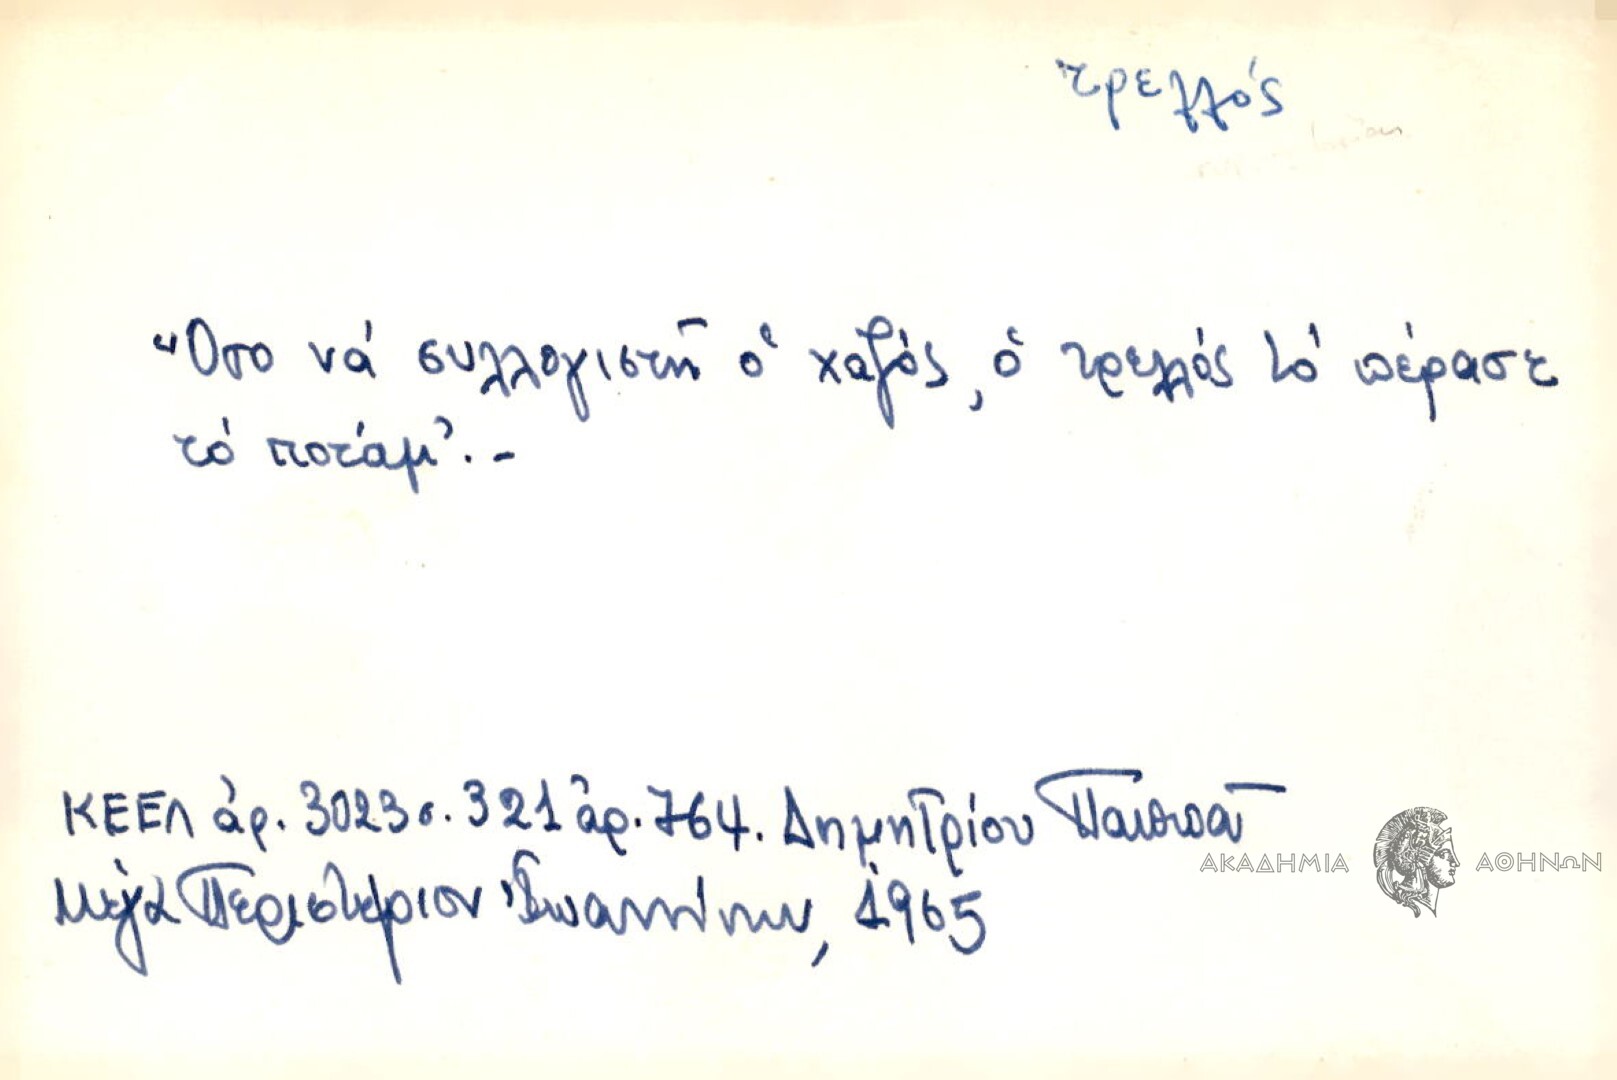 τρελλός
"Οσο νά συλλογιστῆ ὁ χαζός, ὁ τρελλός τό πέρασε
τό ποτάμ'.-
ΚΕΕΛ ἀρ. 3023 σ. 321 ἀρ. 764. Δημητρίου
Μέγα Περιστέριον Ἰωαννίνων, 1965
ΑΚΑΔΗΜΙΑ ΑΘΗΝΩΝ